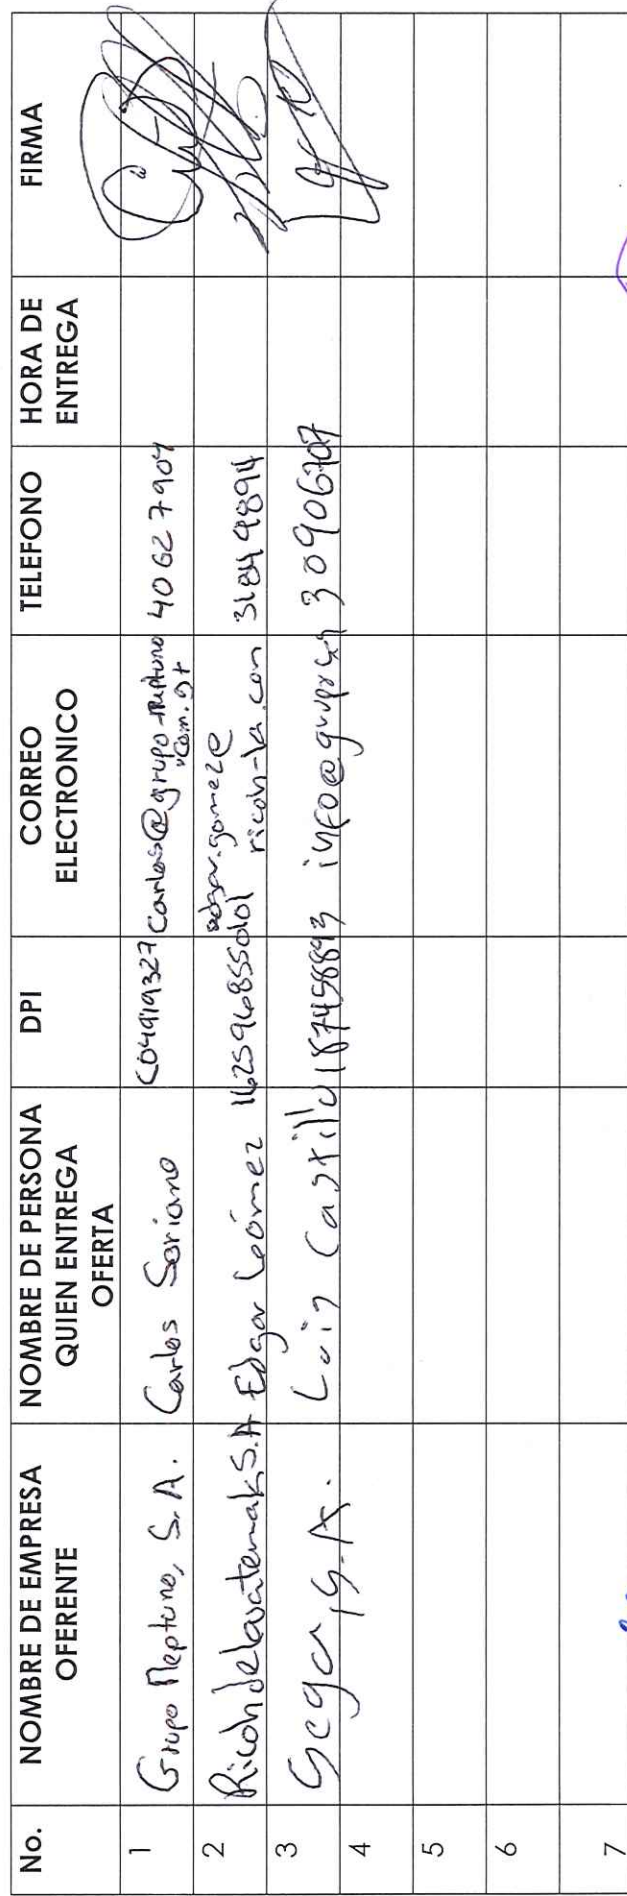 No. NOMBRE DE EMPRESA OFERENTE NOMBRE DE PERSONA QUIEN ENTREGA OFERTA DPI CORREO ELECTRONICO TELEFONO HORA DE ENTREGA FIRMA
1 Grupo Neptuno, S.A. Carlos Soriano C04919327 Carlos@grupo-neptuno.com.gt 40627904
2 Ricoh de Guatemala S.A Edgar Gómez 1625968550101 edgar.gomez@ricoh-la.com 31849894
3 S.A. Luis Castillo 30906707
4
5
6
7